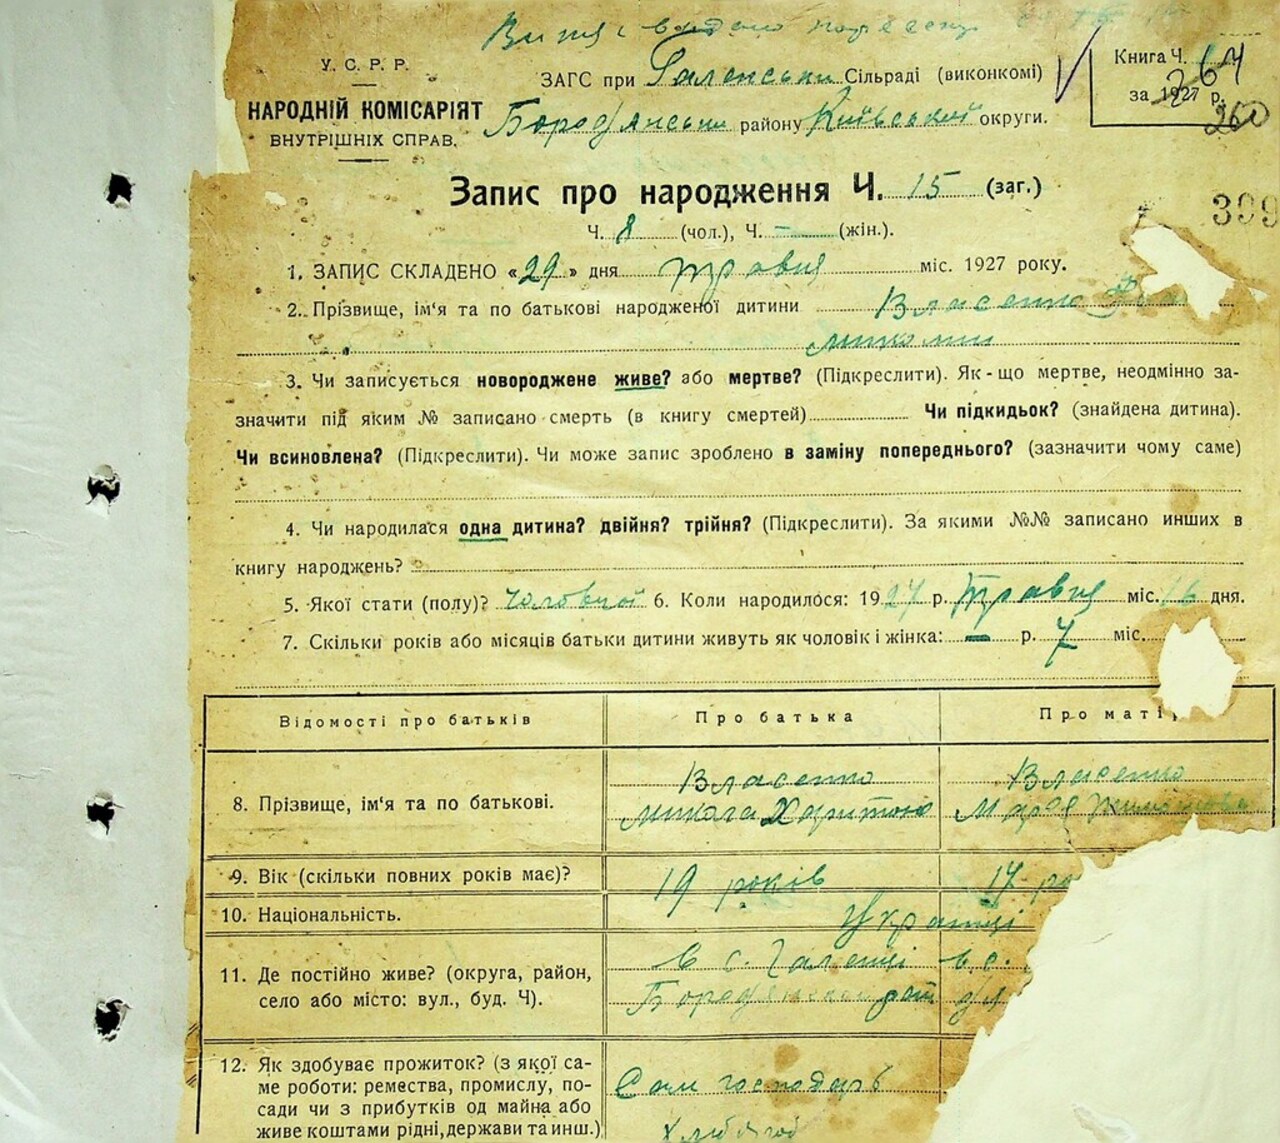 Витяг видано
У. С. Р. Р.
НАРОДНІЙ КОМІСАРІЯТ
ВНУТРІШНІХ СПРАВ.
ЗАГС при Галенський Сільраді (виконкомі)
Бород'янський району Київської округи.
Книга Ч.
за 1927 р.
264
260
Запис про народження Ч. 15 (заг.)
309
Ч. 8 (чол.), Ч. – (жін.).
1. ЗАПИС СКЛАДЕНО «29» дня травня міс. 1927 року.
2. Прізвище, ім'я та по батькові народженої дитини Власенко
Микоми
3. Чи записується новороджене живе? або мертве? (Підкреслити). Як-що мертве, неодмінно за-
значити під яким № записано смерть (в книгу смертей) Чи підкидьок? (знайдена дитина).
Чи всиновлена? (Підкреслити). Чи може запис зроблено в заміну попереднього? (зазначити чому саме)
4. Чи народилася одна дитина? двійня? трійня? (Підкреслити). За якими №№ записано инших в
книгу народжень?
5. Якої стати (полу)? Чоловічої 6. Коли народилося: 1927 р. Травня міс. 16 дня.
7. Скільки років або місяців батьки дитини живуть як чоловік і жінка: – р. 7 міс.
Відомості про батьків Про батька Про маті
8. Прізвище, ім'я та по батькові. Власенко Власенко
Микола Харитоно Марія
9. Вік (скільки повних років має)? 19 років 17 ро
10. Національність. Українці
11. Де постійно живе? (округа, район, в с. Галенці в с.
село або місто: вул., буд. Ч). Бород'янський
12. Як здобуває прожиток? (з якої са-
ме роботи: ремества, промислу, по- Сам господарь
сади чи з прибутків од майна або
живе коштами рідні, держави та инш.)